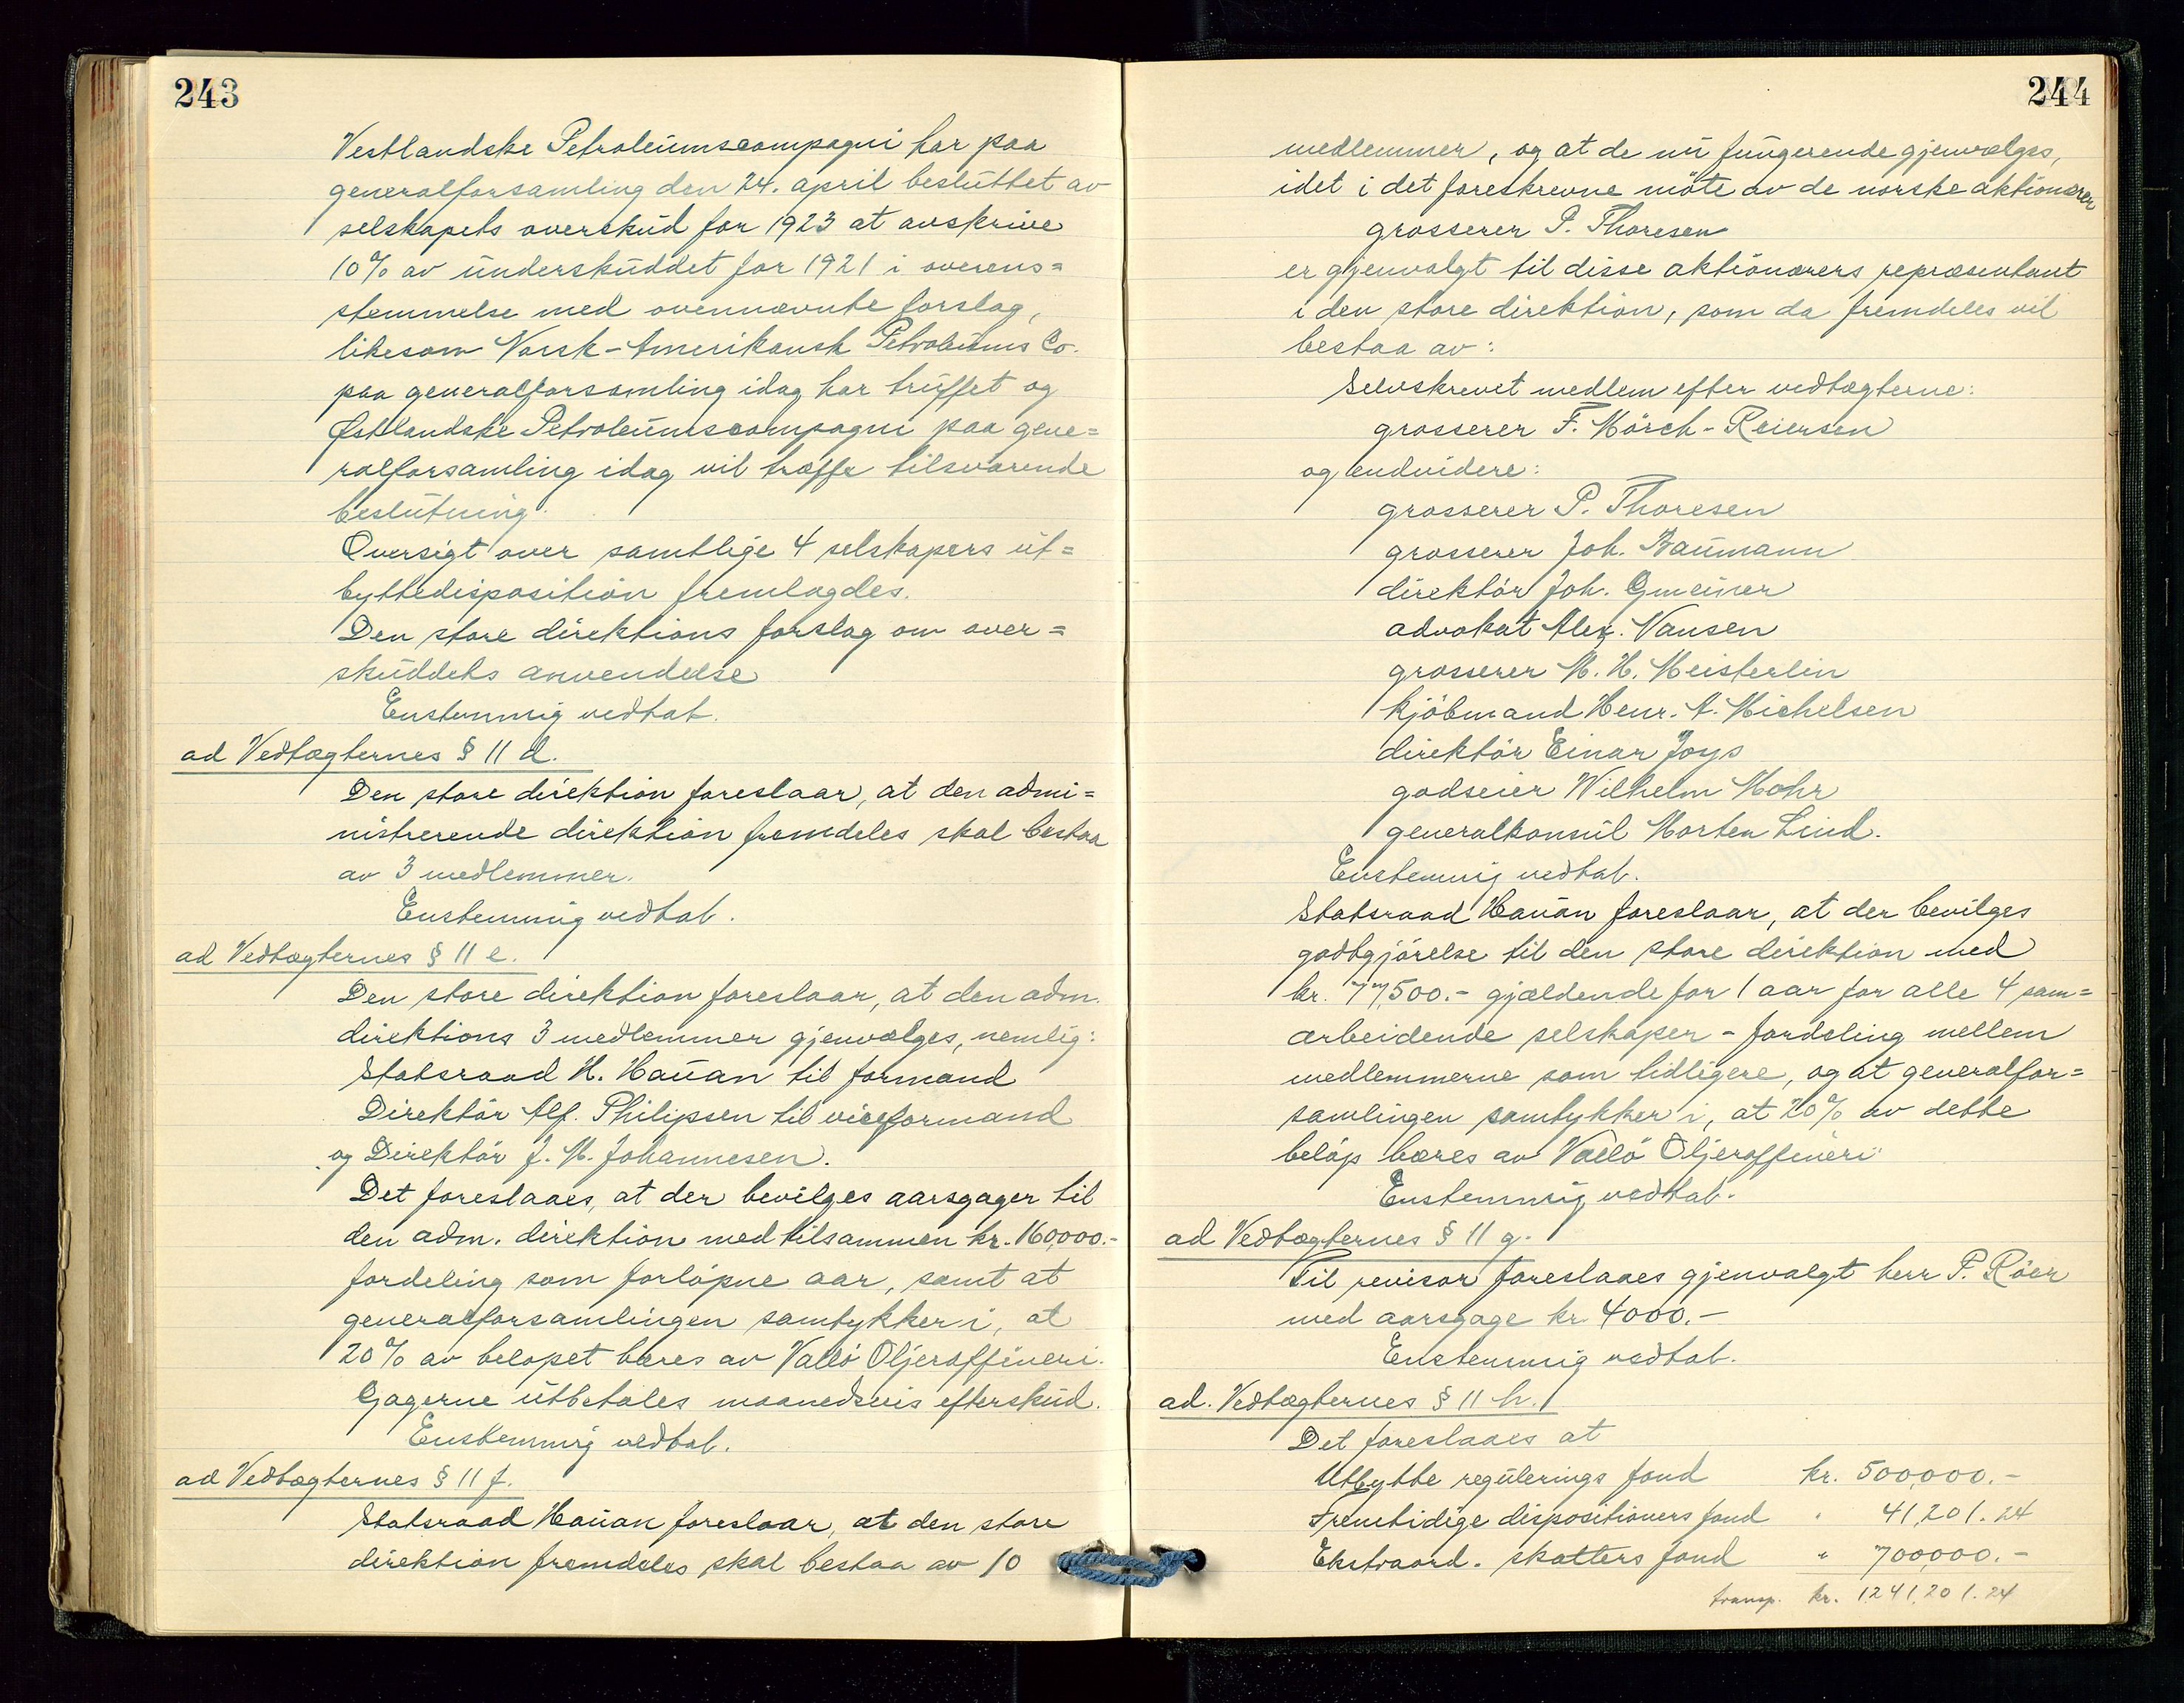 243
Vestlandske Petroleumscompagni har paa
generalforsamling den 24. april besluttet av
selskapets overskud for 1923 at avskrive
10% av underskuddet for 1921 i overens=
stemmelse med ovennævnte forslag,
likesom Norsk-Amerikansk Petroleums Co.
paa generalforsamling idag har truffet og
Østlandske Petroleumscompagni paa gene=
ralforsamling idag vil træffe tilsvarende
beslutning.
Oversigt over samtlige 4 selskapers ut=
byttedisposition fremlagdes.
Den store direktions forslag om over=
skuddets anvendelse
Enstemmig vedtat.
ad Vedtægternes § 11 d.
Den store direktion foreslaar, at den admi=
nistrerende direktion fremdeles skal bestaa
av 3 medlemmer.
Enstemmig vedtat.
ad Vedtægternes § 11 e.
Den store direktion foreslaar, at den adm.
direktions 3 medlemmer gjenvælges, nemlig:
Statsraad H. Hauan til formand
Direktör Alf. Philipsen til viceformand
og Direktör J. M. Johannesen.
Det foreslaaes, at der bevilges aarsgager til
den adm. direktion med tilsammen kr. 160,000.-
fordeling som forlöpne aar, samt at
generalforsamlingen samtykker i, at
20% av belöpet bæres av Vallö Oljeraffineri.
Gagerne utbetales maanedsvis efterskud.
Enstemmig vedtat.
ad Vedtægternes § 11 f.
Statsraad Hauan foreslaar, at den store
direktion fremdeles skal bestaa av 10
244
medlemmer, og at de nu fungerende gjenvælges,
idet i det foreskrevne möte av de norske aktionærer
grosserer P. Thoresen
er gjenvalgt til disse aktionærers repræsentant
i den store direktion, som da fremdeles vil
bestaa av:
Selvskrevet medlem efter vedtægterne:
grosserer F. Mörch-Reiersen
og endvidere:
grosserer P. Thoresen
grosserer Joh. Baumann
direktör Joh. Gmeiner
advokat Alex. Nansen
grosserer M. H. Meisterlin
kjöbmand Henr. A. Michelsen
direktör Einar Joys
godseier Wilhelm Mohr
generalkonsul Morten Lind.
Enstemmig vedtat.
Statsraad Hauan foreslaar, at der bevilges
godtgjörelse til den store direktion med
kr. 77,500.- gjældende for 1 aar for alle 4 sam=
arbeidende selskaper - fordeling mellem
medlemmerne som tidligere, og at generalfor=
samlingen samtykker i, at 20% av dette
belöp bæres av Vallö Oljeraffineri
Enstemmig vedtat.
ad Vedtægternes § 11 g.
Til revisor foreslaaes gjenvalgt herr P. Röer
med aarsgage kr. 4000.-
Enstemmig vedtat.
ad. Vedtægternes § 11 h.
Det foreslaaes at
Utbytte regulerings fond kr. 500,000.-
Fremtidige dispositioners fond " 41,201.24
Ekstraord. skatters fond " 700,000.-
transp. kr. 1,241,201.24